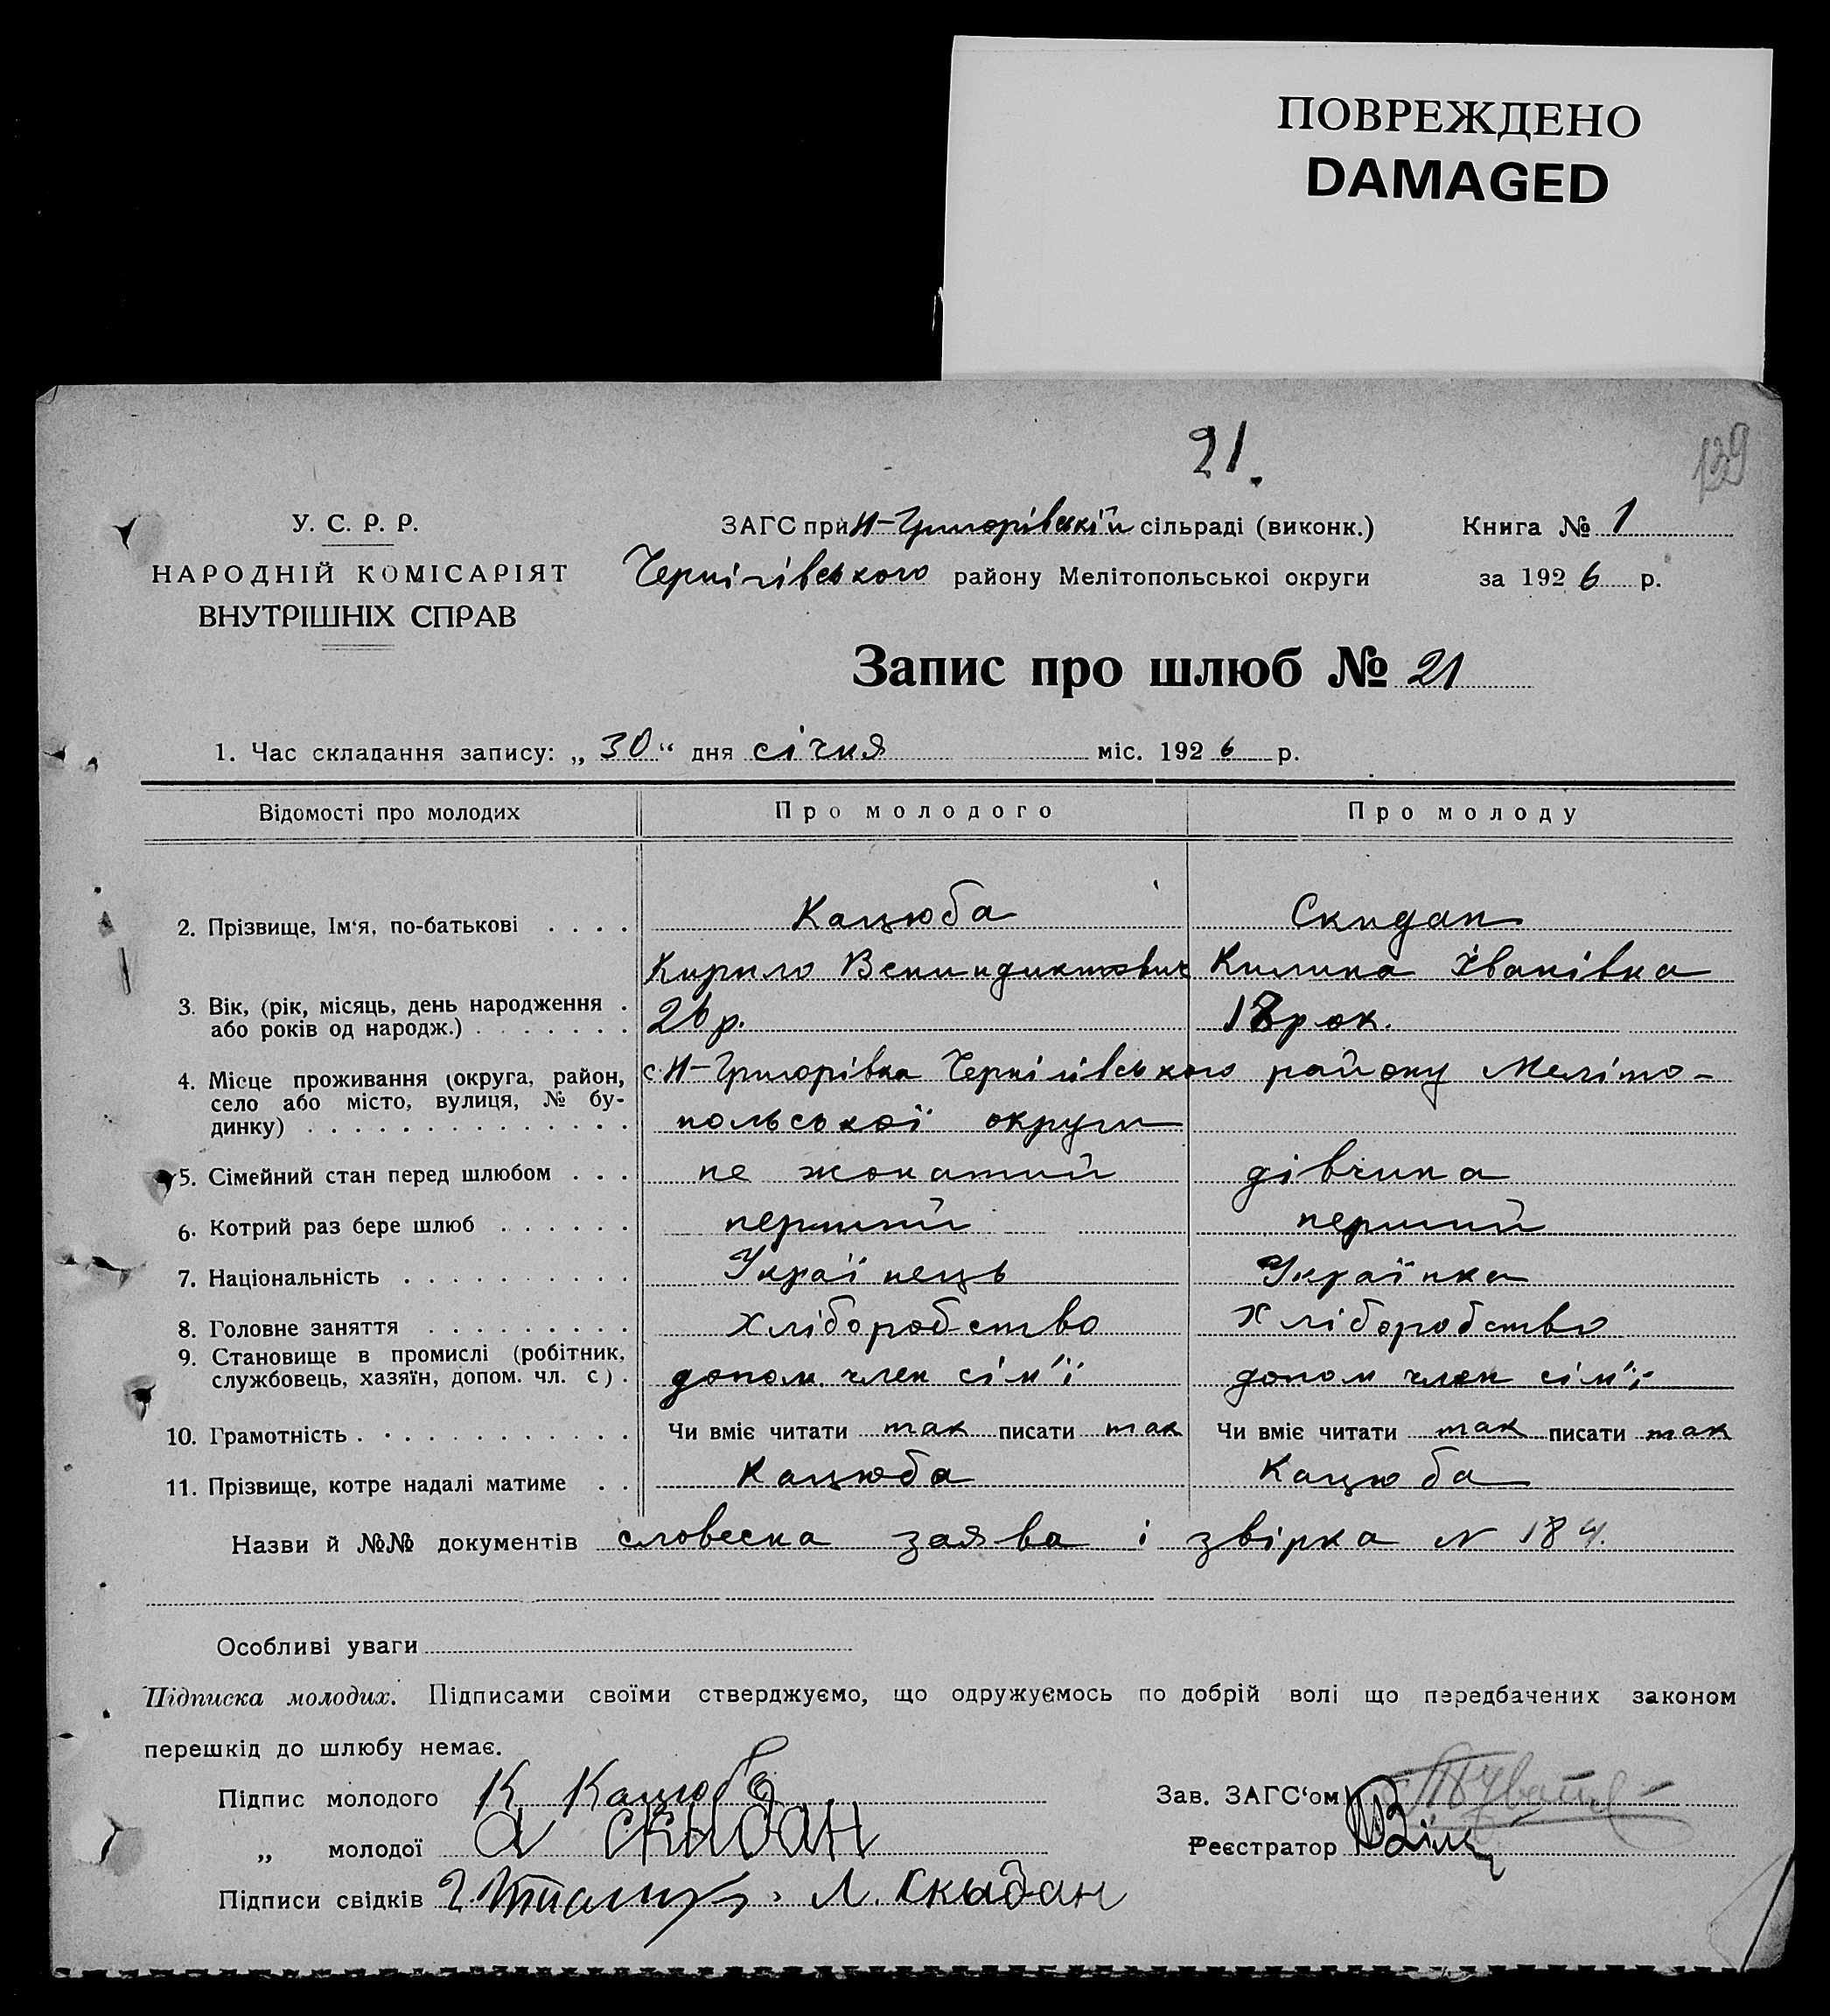 ПОВРЕЖДЕНО
DAMAGED
21.
139
У. С. Р. Р.
НАРОДНІЙ КОМІСАРІЯТ
ВНУТРІШНІХ СПРАВ
ЗАГС при Н-Григорівській сільраді (виконк.)
Чернігівського району Мелітопольськоі округи
Книга № 1
за 1926 р.
Запис про шлюб № 21
1. Час складання запису: „30“ дня січня міс. 1926 р.
Відомості про молодих Про молодого Про молоду
2. Прізвище, Ім'я, по-батькові . . . . Кацюба Скидан
Кирило Венидиктович Килина Іванівна
3. Вік, (рік, місяць, день народження . або років од народж.) . . . . . . . 26 р. 18 рок.
4. Місце проживання (округа, район, с. Н-Григорівка Чернігівського району Меліто-
село або місто, вулиця, № бу-
динку) . . . . . . . . . . . . . . польської округи
5. Сімейний стан перед шлюбом . . . не жонатий дівчина
6. Котрий раз бере шлюб . . . . . . перший перший
7. Національність . . . . . . . . . . Українець Українка
8. Головне заняття . . . . . . . . . Хліборобство Хліборобство
9. Становище в промислі (робітник,
службовець, хазяїн, допом. чл. с) . допом. член сім'ї допом член сім'ї
10. Грамотність . . . . . . . . . . . . Чи вміє читати так писати так Чи вміє читати так писати так
11. Прізвище, котре надалі матиме . . Кацюба Кацюба
Назви й №№ документів словесна заява і звірка N 184.
Особливі уваги
Підписка молодих. Підписами своїми стверджуємо, що одружуємось по добрій волі що передбачених законом
перешкід до шлюбу немає.
Підпис молодого К Кацюба Зав. ЗАГС'ом
„ молодої а скыдан Реєстратор
Підписи свідків Л. Скыдан